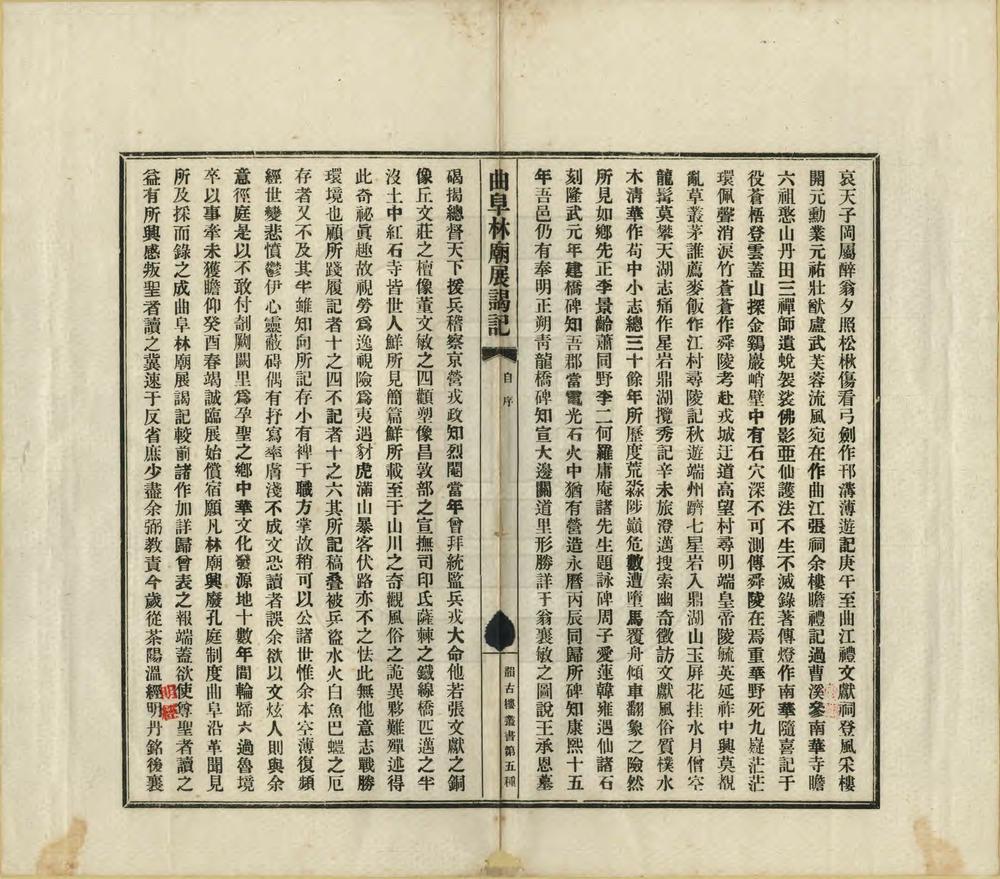 哀天子岡屬醉翁夕照松楸傷看弓劍作邗溝薄遊記庚午至曲江禮文獻祠登風采樓
開元勳業元祐壯猷盧武芙蓉流風宛在作曲江張祠余樓瞻禮記過曹溪參南華寺瞻
六祖憨山丹田三禪師遺蛻袈裟佛影亜仙護法不生不滅錄著傳燈作南華隨喜記于
役蒼梧登雲蓋山探金鷄巖峭壁中有石穴深不可測傳舜陵在焉重華野死九嶷茫茫
環佩聲消淚竹蒼蒼作舜陵考赴戎城迂道高望村尋明端皇帝陵毓英延祚中興莫覩
亂草叢茅誰薦麥飯作江村尋陵記秋遊端州躋七星岩入鼎湖山玉屏花挂水月僧空
龍髯莫攀天湖志痛作星岩鼎湖攬秀記辛未旅澄邁搜索幽奇徵訪文獻風俗質樸水
木淸華作苟中小志總三十餘年所歷度荒淼陟巔危數遭墮馬覆舟傾車翻象之險然
所見如鄉先正李景齡蕭同野李二何羅庸庵諸先生題詠碑周子愛蓮韓雍遇仙諸石
刻隆武元年建橋碑知吾郡當電光石火中猶有營造永曆丙辰同歸所碑知康熙十五
年吾邑仍有奉明正朔靑龍橋碑知宣大邊關道里形勝詳于翁襄敏之圖說王承恩墓
曲阜林廟展謁記
自序
韶古樓叢書第五種
碣揭總督天下援兵稽察京營戎政知烈閹當年曾拜統監兵戎大命他若張文獻之銅
像丘文莊之檀像董文敏之四顴塑像昌敦部之宣撫司印氏薩棘之鐵線橋匹邁之半
沒土中紅石寺皆世人鮮所見簡篇鮮所載至于山川之奇觀風俗之詭異夥難殫述得
此奇祕眞趣故視勞爲逸視險爲夷遇豺虎滿山暴客伏路亦不之怯此無他意志戰勝
環境也顧所踐履記者十之四不記者十之六其所記稿疊被兵盜水火白魚巴螘之厄
存者又不及其半雖知向所記存小有裨于職方掌故稍可以公諸世惟余本空薄復頻
經世變悲憤鬱伊心靈蔽碍偶有抒寫率膚淺不成文恐讀者誤余欲以文炫人則與余
意徑庭是以不敢付剞劂闕里爲孕聖之鄉中華文化發源地十數年間輪蹄六過魯境
卒以事牽未獲瞻仰癸酉春竭誠臨展始償宿願凡林廟興廢孔庭制度曲阜沿革聞見
所及採而錄之成曲阜林廟展謁記較前諸作加詳歸曾表之報端蓋欲使尊聖者讀之
益有所興感叛聖者讀之冀速于反省庶少盡余弼教責今歲從茶陽溫經明丹銘後襄